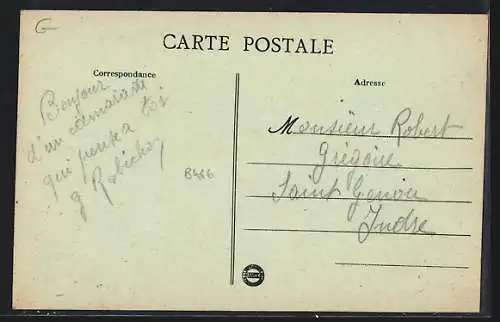 G
CARTE POSTALE
Correspondance
Bonjour
d'un camarade
qui pense a toi
g Robichon
B486
Adresse
Monsieur Robert
Grégoire
Saint Genou
Indre